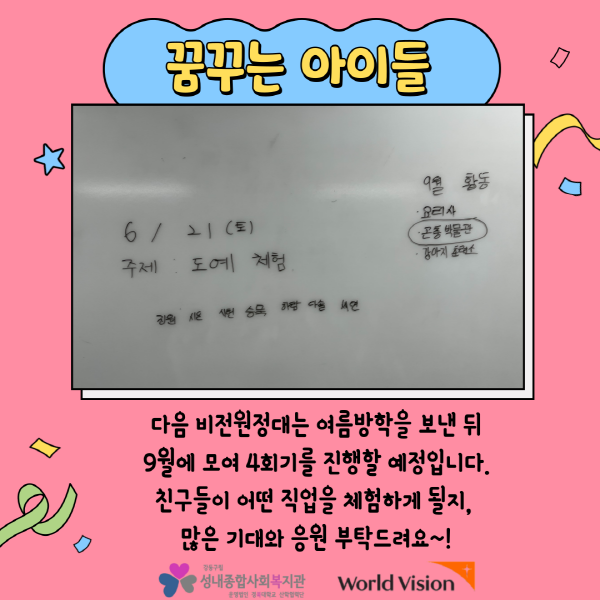 꿈꾸는 아이들
9월 활동
· 요리사
· 곤충 박물관
6 / 21 (토)
주제 : 도예 체험
다음 비전원정대는 여름방학을 보낸 뒤
9월에 모여 4회기를 진행할 예정입니다.
친구들이 어떤 직업을 체험하게 될지,
많은 기대와 응원 부탁드려요~!
강동구립
성내종합사회복지관
운영법인 경희대학교 산학협력단
World Vision